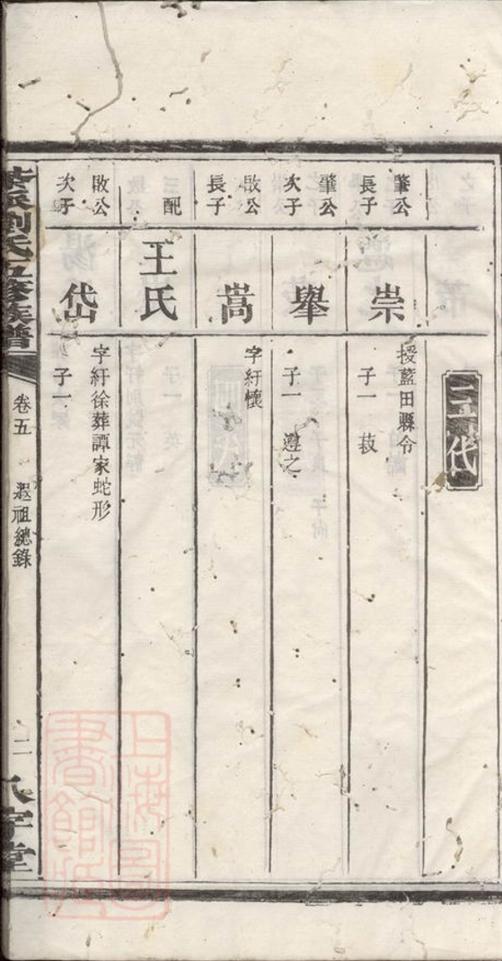 三代
肇公
長子
崇
授藍田縣令
子一 䓤
肇公
次子
舉
子一 遵之
啟公
長子
嵩
字紆懷
配
王氏
啟公
次子
岱
字紆徐葬譚家蛇形
子一
劉氏五修族譜
卷五
遐祖總錄
二
上海圖書館藏